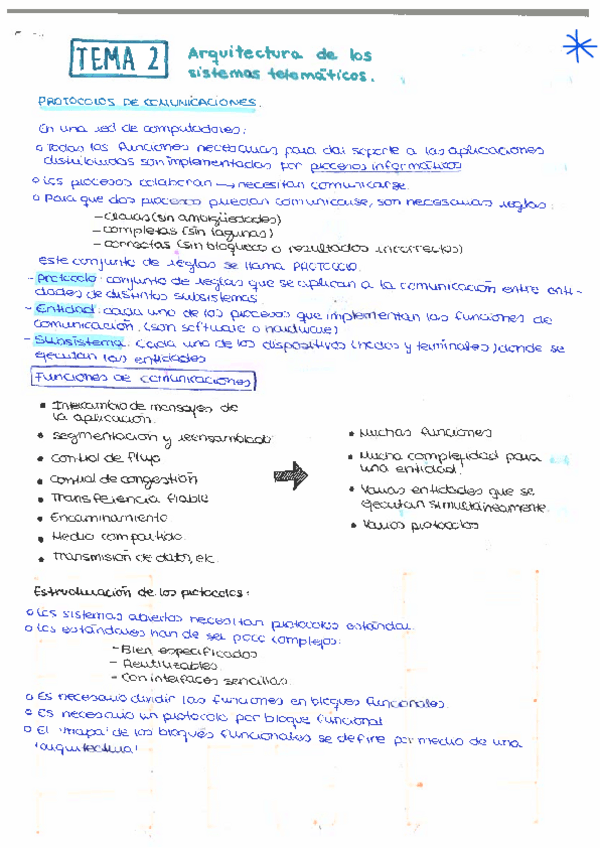 TEMA 2
Arquitectura de los
sistemas telemáticos.
PROTOCOLOS DE COMUNICACIONES.
En una red de computadores:
o Todas las funciones necesarias para dar soporte a las aplicaciones
distribuidas son implementadas por procesos informáticos
o Los procesos colaboran → necesitan comunicarse.
o Para que dos procesos puedan comunicarse, son necesarias reglas:
- claras (sin ambigüedades)
- completas (sin lagunas)
- correctas (sin bloqueos o resultados incorrectos)
Este conjunto de reglas se llama PROTOCOLO.
- Protocolo: conjunto de reglas que se aplican a la comunicación entre enti-
dades de distintos subsistemas.
- Entidad: cada uno de los procesos que implementan las funciones de
comunicación. (son software o hardware)
- Subsistema: cada uno de los dispositivos (nodos y terminales) donde se
ejecutan las entidades
Funciones de comunicaciones
• Intercambio de mensajes de
la aplicación.
• Segmentación y reensamblado
• Control de flujo
• Control de congestión
• Transferencia fiable
• Encaminamiento
• Medio compartido.
• Transmisión de datos, etc.
• Muchas funciones
• Mucha complejidad para
una entidad.
• Varias entidades que se
ejecutan simultáneamente.
• Varios protocolos
Estructuración de los protocolos:
o Los sistemas abiertos necesitan protocolos estándar.
o Los estándares han de ser poco complejos:
- Bien especificados
- Reutilizables.
- Con interfaces sencillas.
o Es necesario dividir las funciones en bloques funcionales.
o Es necesario un protocolo por bloque funcional
o El 'mapa' de los bloques funcionales se define por medio de una
'arquitectura'